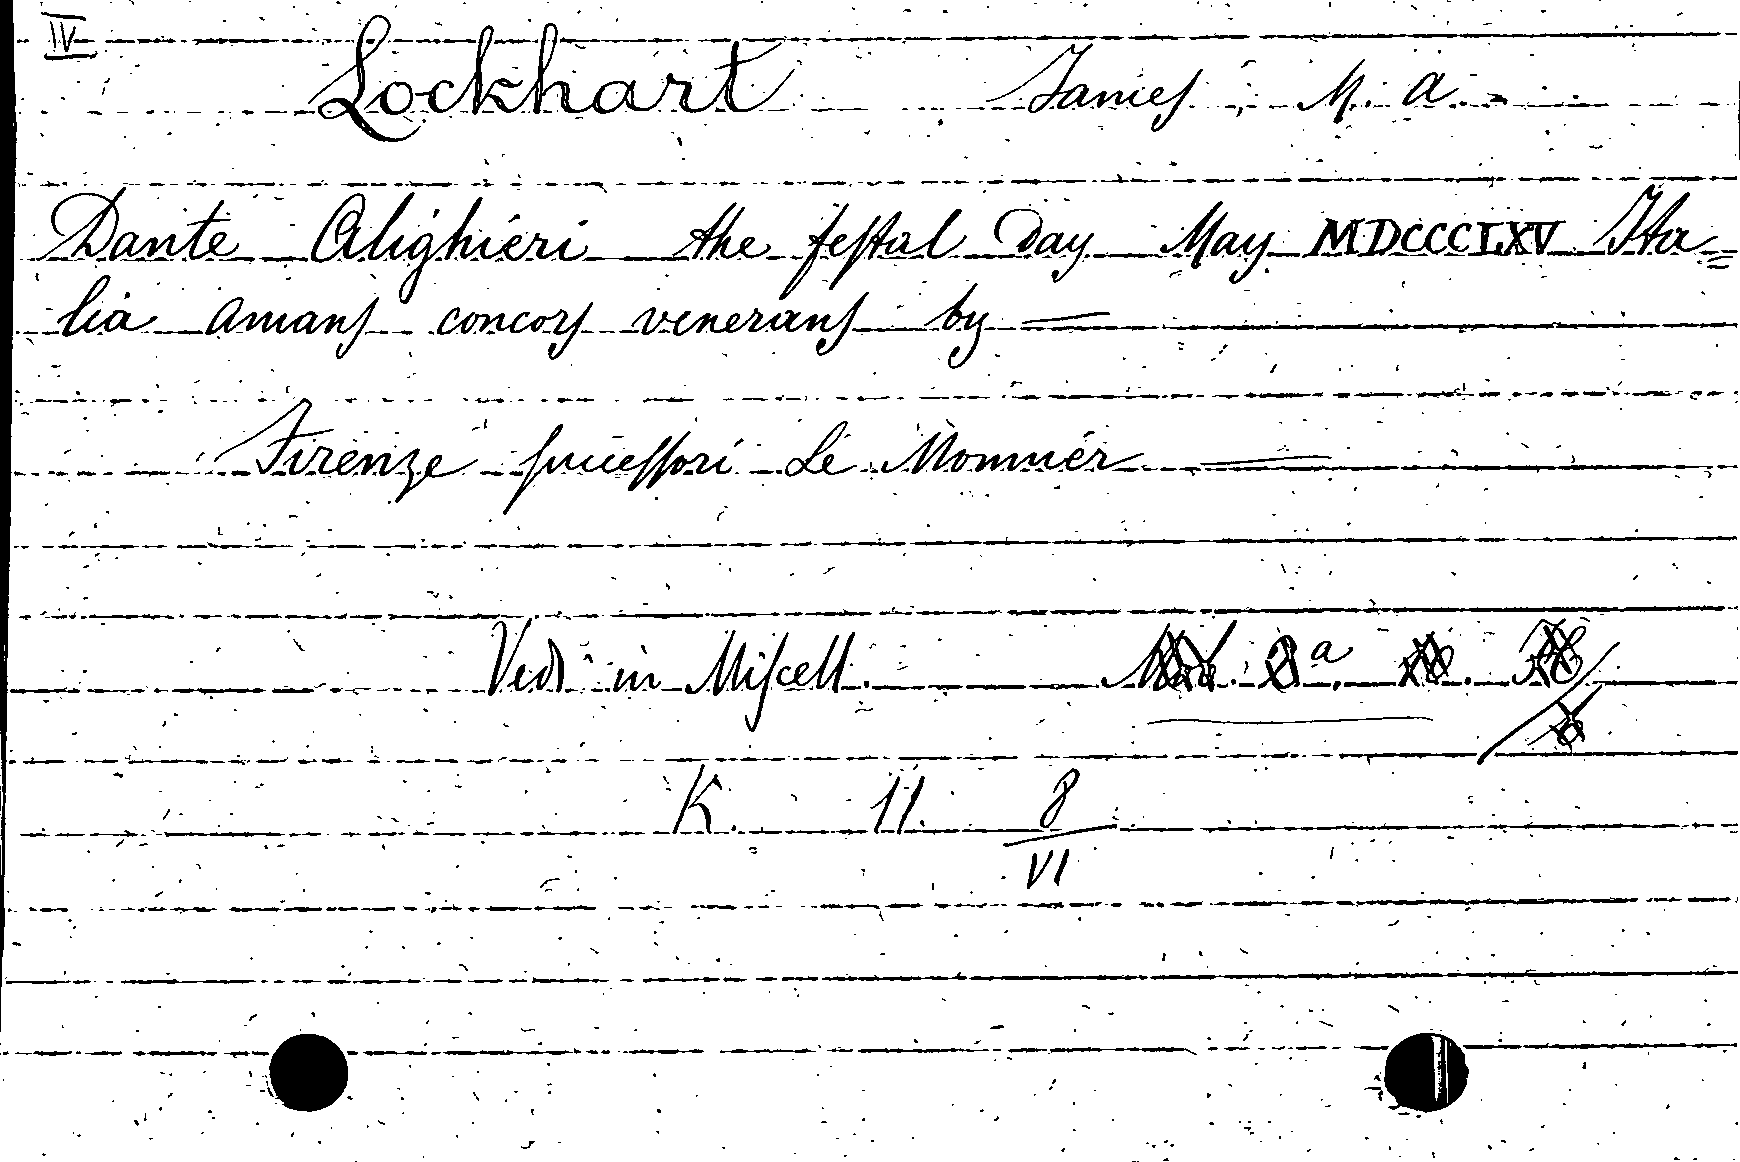 IV
Lockhart James, M. A.
Dante Alighieri the festal Day May MDCCCLXV Ita=
lia amans concors venerans by —
Firenze successori Le Monnier —
Vedi in Miscell.
K. 11. 8
VI